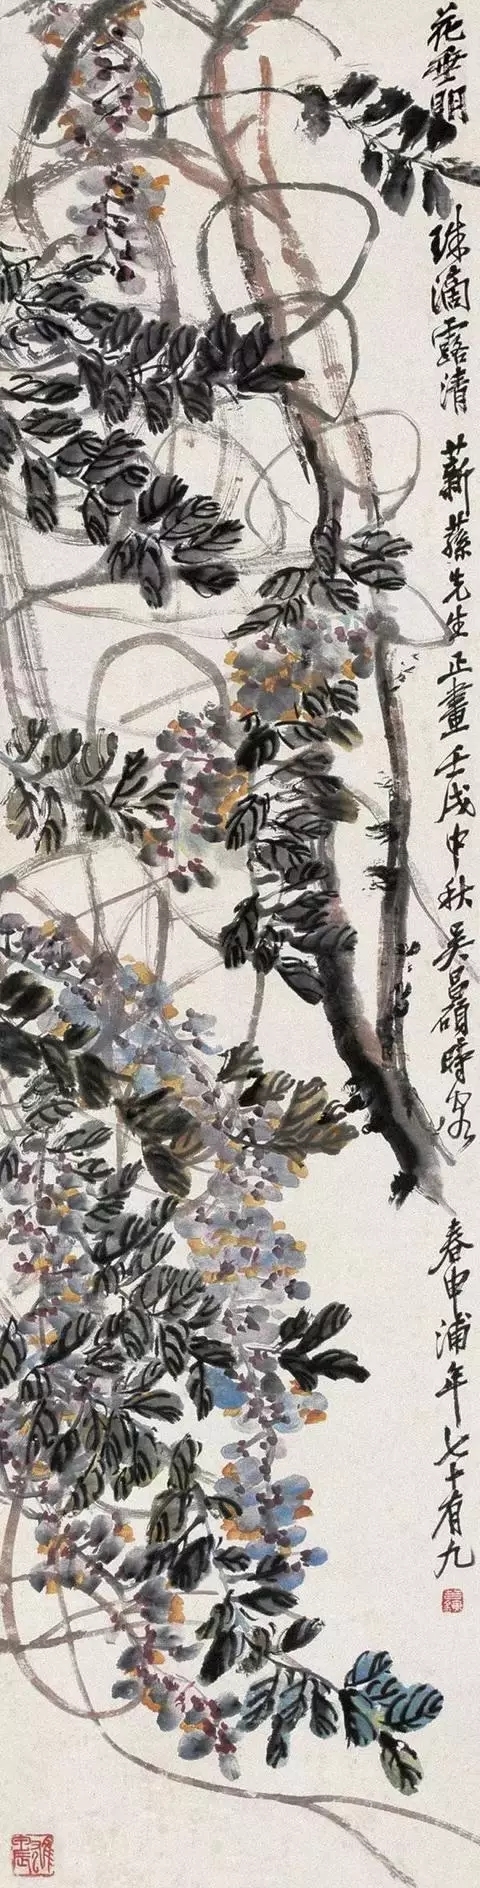 花垂明珠滴露清薪蓀先生正畫壬戌中秋吳昌碩時客春申浦年七十有九
雄甲辰